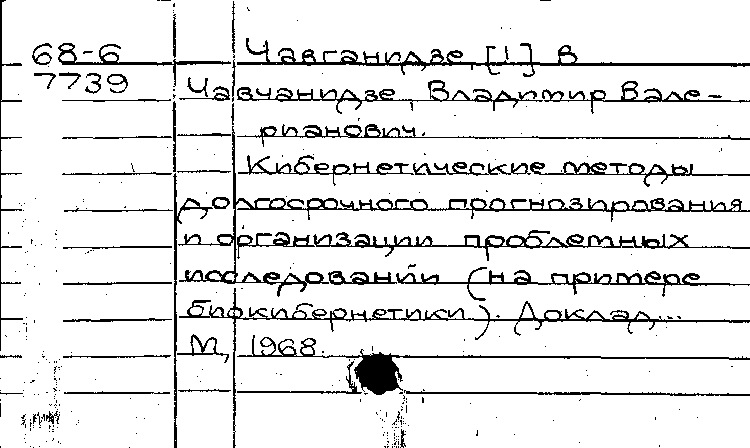 68-6 Чавганидзе, [!] В
7739 Чавчанидзе, Владимир Вале-
рианович.
Кибернетические методы
долгосрочного прогнозирования
и организации проблемных
исследований (на примере
биокибернетики). Доклад...
М, 1968.